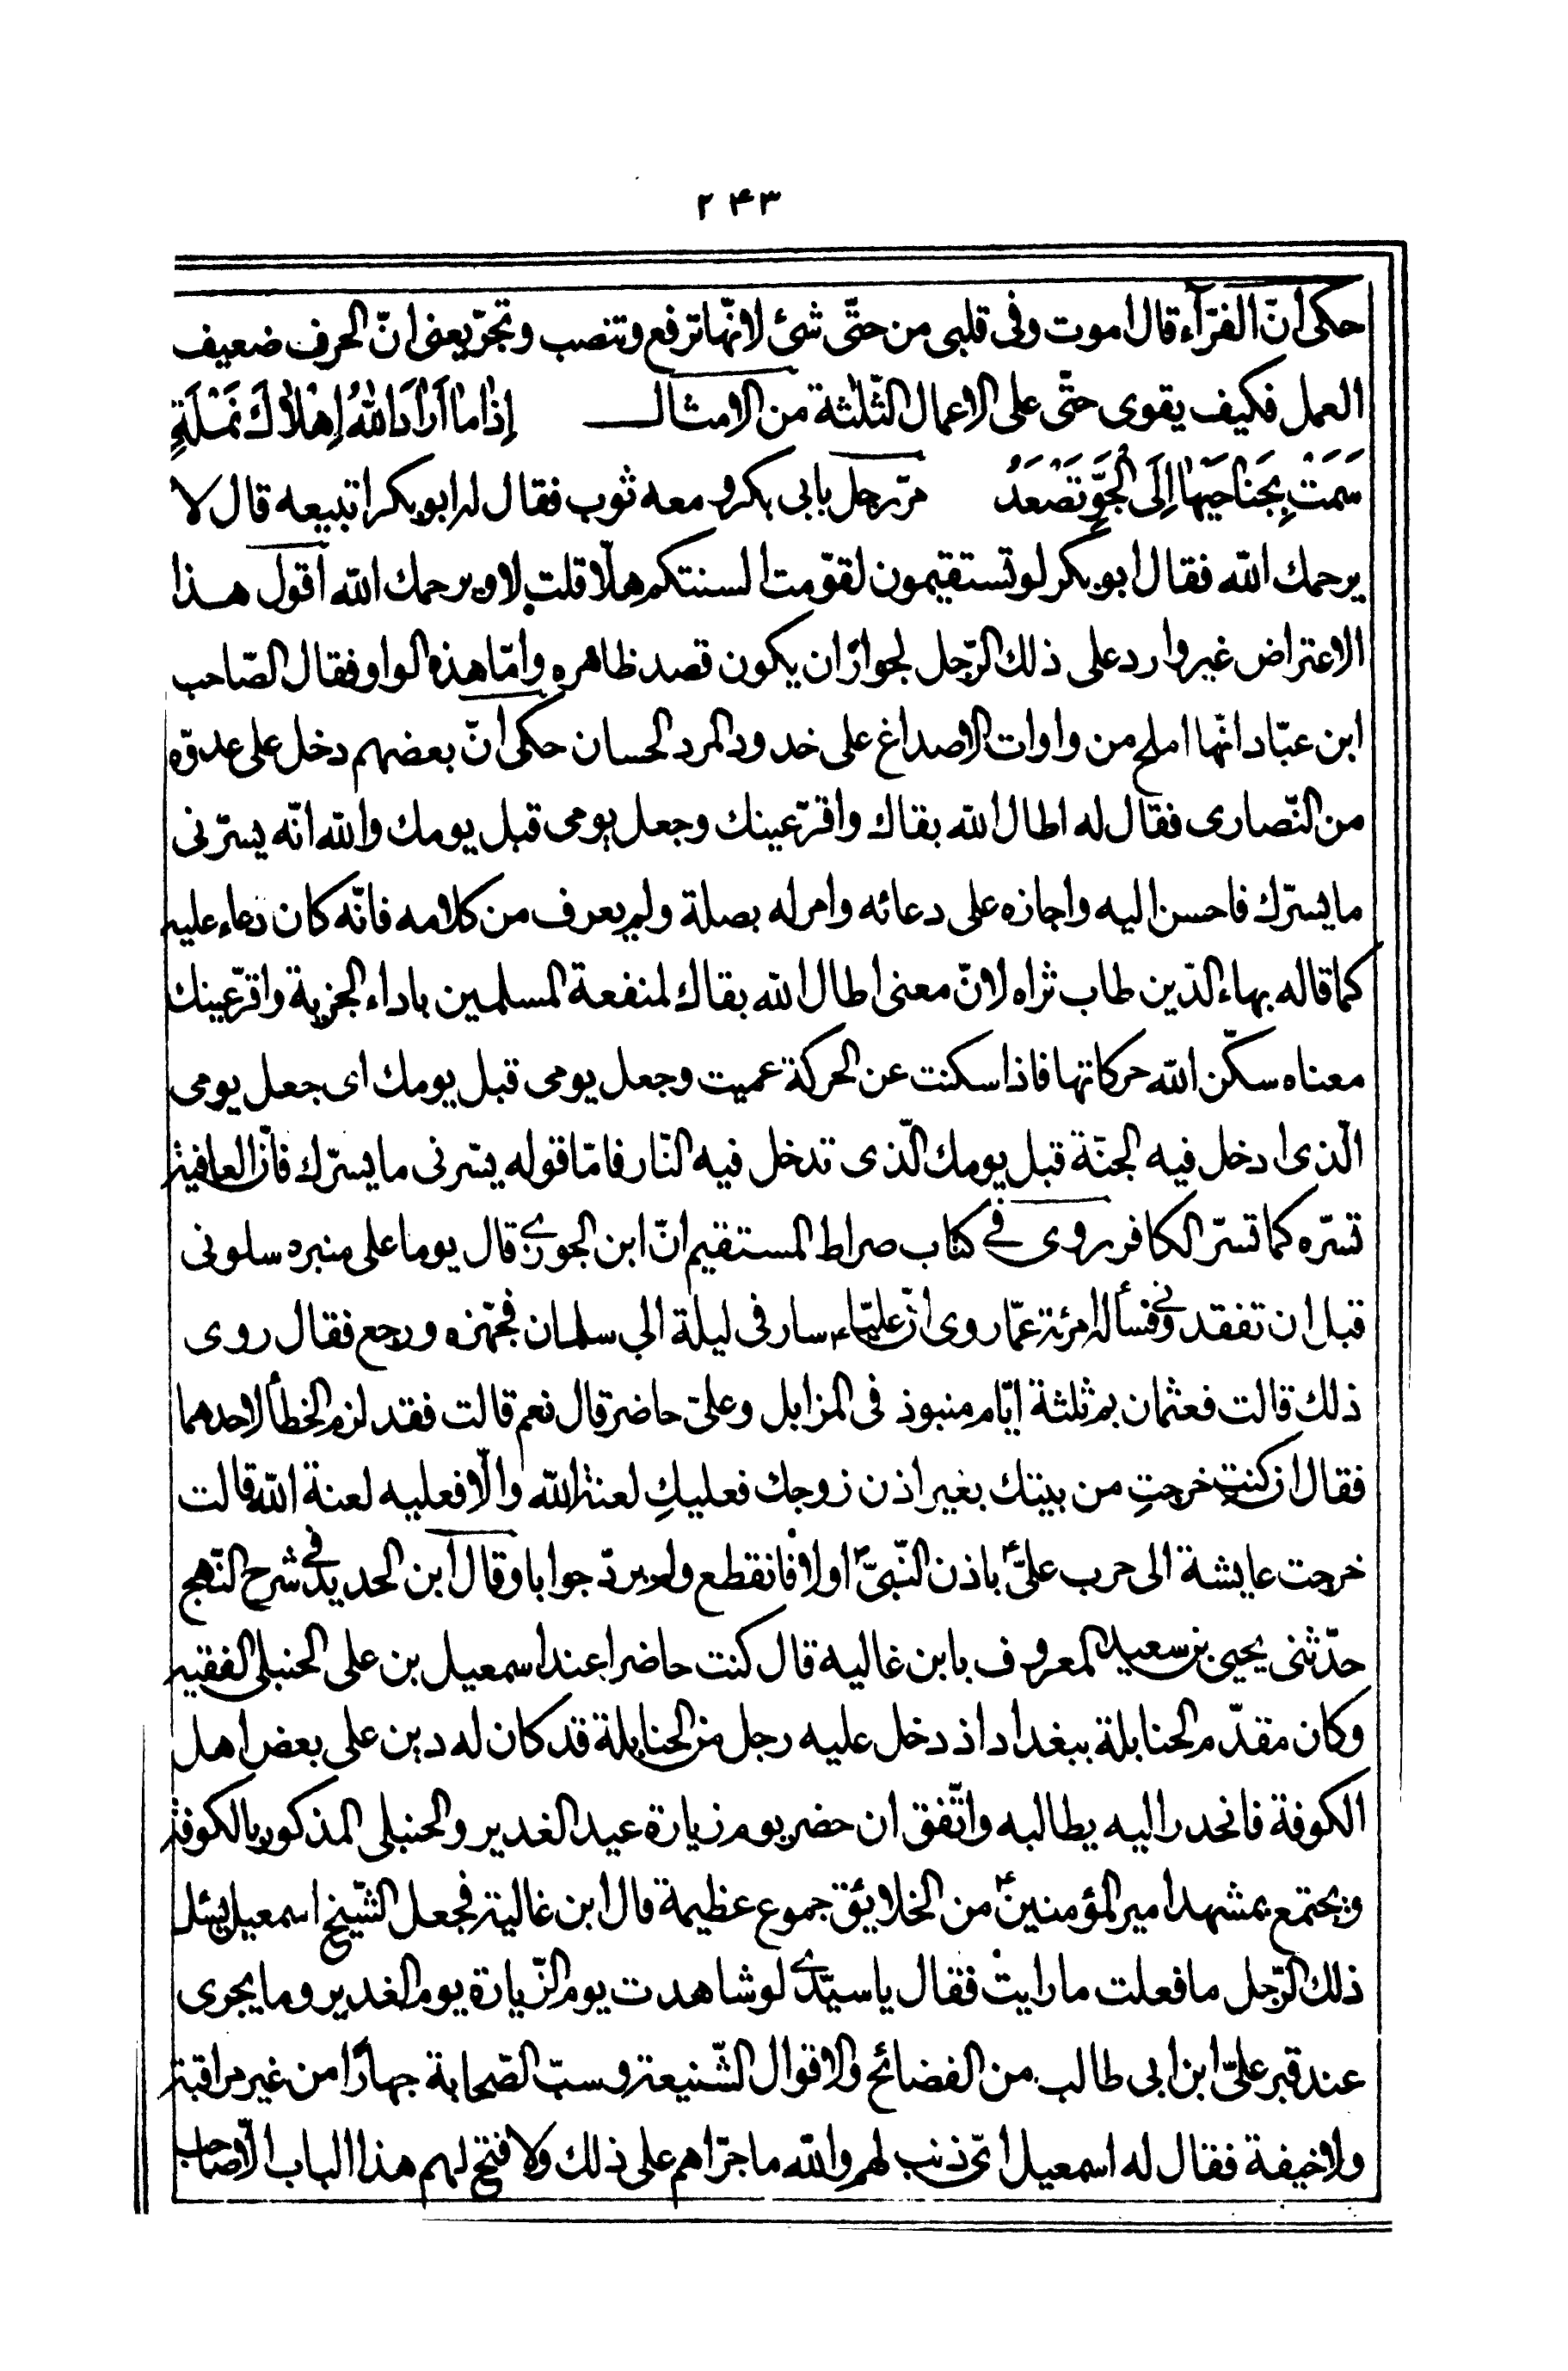 ۲۴۳
حكى انّ الفرّآء قال اموت وفى قلبى من حتّى شئ لانّها ترفع وتنصب وتجرّ يعنى انّ الحرف ضعيف
العمل فكيف يقوى حتّى على الاعمال الثّلثة من الامثال إِذٰا مٰا اَرٰادَ اللّٰهُ اِهْلاٰكَ نَمْلَةٍ
سَمَتْ بِجَنٰاحَيْهٰا اِلَى الْجَوِّ تَصْعَدُ مرّ رجل بابى بكر و معه ثوب فقال له ابو بكر اتبيعه قال لا
يرحمك الله فقال ابو بكر لو تستقيمون لقوّمت السنتكم هلّا قلت لا و يرحمك الله اقول هذا
الاعتراض غير وارد على ذلك الرّجل لجواز ان يكون قصد ظاهره وامّا هذه الواو فقال الصّاحب
ابن عبّاد انّها املح من واوات الاصداغ على خدود المرد الحسان حكى انّ بعضهم دخل على عدوّه
من النّصارى فقال له اطال الله بقاك واقرّ عينك وجعل يومى قبل يومك والله انّه يسرّنى
ما يسرّك فاحسن اليه واجازه على دعائه وامر له بصلة ولم يعرف من كلامه فانّه كان دعاء عليه
كما قاله بهاء الدّين طاب ثراه لانّ معنى اطال الله بقاك لمنفعة المسلمين باداء الجزية واقرّ عينك
معناه سكّن الله حركاتها فاذا سكنت عن الحركة عميت وجعل يومى قبل يومك اى جعل يومى
الّذى ادخل فيه الجنّة قبل يومك الّذى تدخل فيه النّار فامّا قوله يسّرنى ما يسرّك فانّ العافية
تسّره كما تسّر الكافر روى فى كتاب صراط المستقيم انّ ابن الجوزى قال يوما على منبره سلونى
قبل ان تفقدونى فسأله امرئة عمّا روى انّ عليّاء سار فى ليلة الى سلمان فجهّزه ورجع فقال روى
ذلك قالت فعثمان بم ثلثة ايّام منبوذ فى المزابل وعلىّ حاضر قال نعم قالت فقد لزم الخطأ لاحدهما
فقال ان كنتِ خرجتِ من بيتك بغير اذن زوجك فعليكِ لعنة الله والّا فعليه لعنة الله قالت
خرجت عايشة الى حرب علىّ ع باذن النّبىّ ص اولا فانقطع ولم يردّ جوابا وقال ابن الحديد فى شرح النّهج
حدّثنى يحيى بن سعيد المعروف بابن غالية قال كنت حاضرا عند اسمعيل بن على الحنبلى الفقيه
وكان مقدّم الحنابلة ببغداد اذ دخل عليه رجل من الحنابلة قد كان له دين على بعض اهل
الكوفة فانحدر اليه يطالبه واتّفق ان حضر يوم زيارة عيد الغدير والحنبلى المذكور بالكوفة
ويجتمع بمشهد امير المؤمنين ع من الخلايئق جموع عظيمة قال ابن غالية فجعل الشّيخ اسمعيل يسئل
ذلك الرّجل ما فعلت ما رايت فقال يا سيّدى لو شاهدت يوم الزّيارة يوم الغدير وما يجرى
عند قبر علىّ ابن ابى طالب من الفضائح والاقوال الشّنيعة و سبّ الصّحابة جهارًا من غير مراقبة
ولا خيفة فقال له اسمعيل اىّ ذنب لهم والله ما جرّاهم على ذلك ولا فتح لهم هذا الباب الّا صاحب